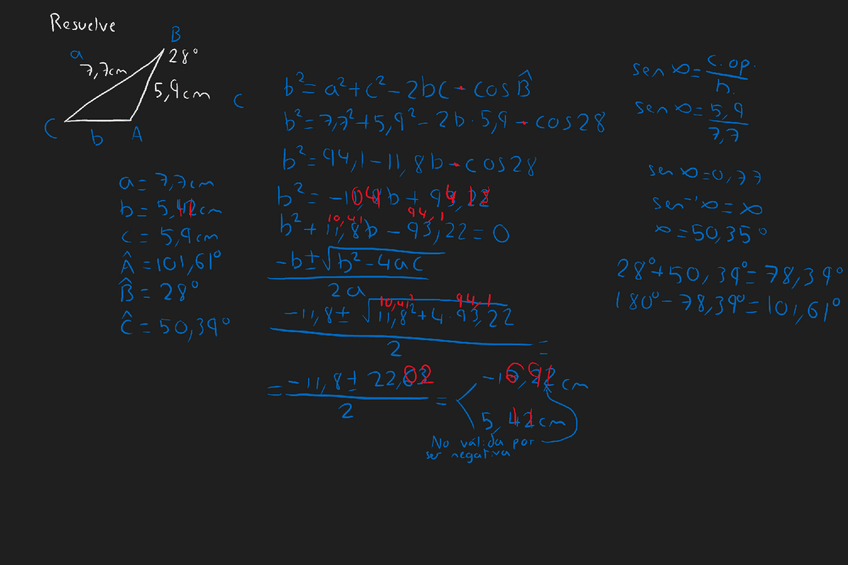 Resuelve
B
a
28°
7,7cm
5,9cm
C
b
A
a= 7,7cm
c= 5,9cm
Â=101,61°
B̂= 28°
Ĉ= 50,39°
c
b²=a²+c²-2bc·cosB̂
b²=7,7²+5,9²-2b·5,9·cos28
b²=94,1-11,8b·cos28
10,41 94,1
b²+11,8b-93,22=0
-b±√b²-4ac
2a
10,41² 94,1
-11,8±√11,8²+4·93,22
2
=
=-11,8±22,02
2
=
cm
cm
No válida por
ser negativa
sen ∞=c.op.
h.
sen ∞=5,9
7,7
sen ∞=0,77
sen⁻¹∞=∞
∞=50,35°
28°+50,39°=78,39°
180°-78,39°=101,61°